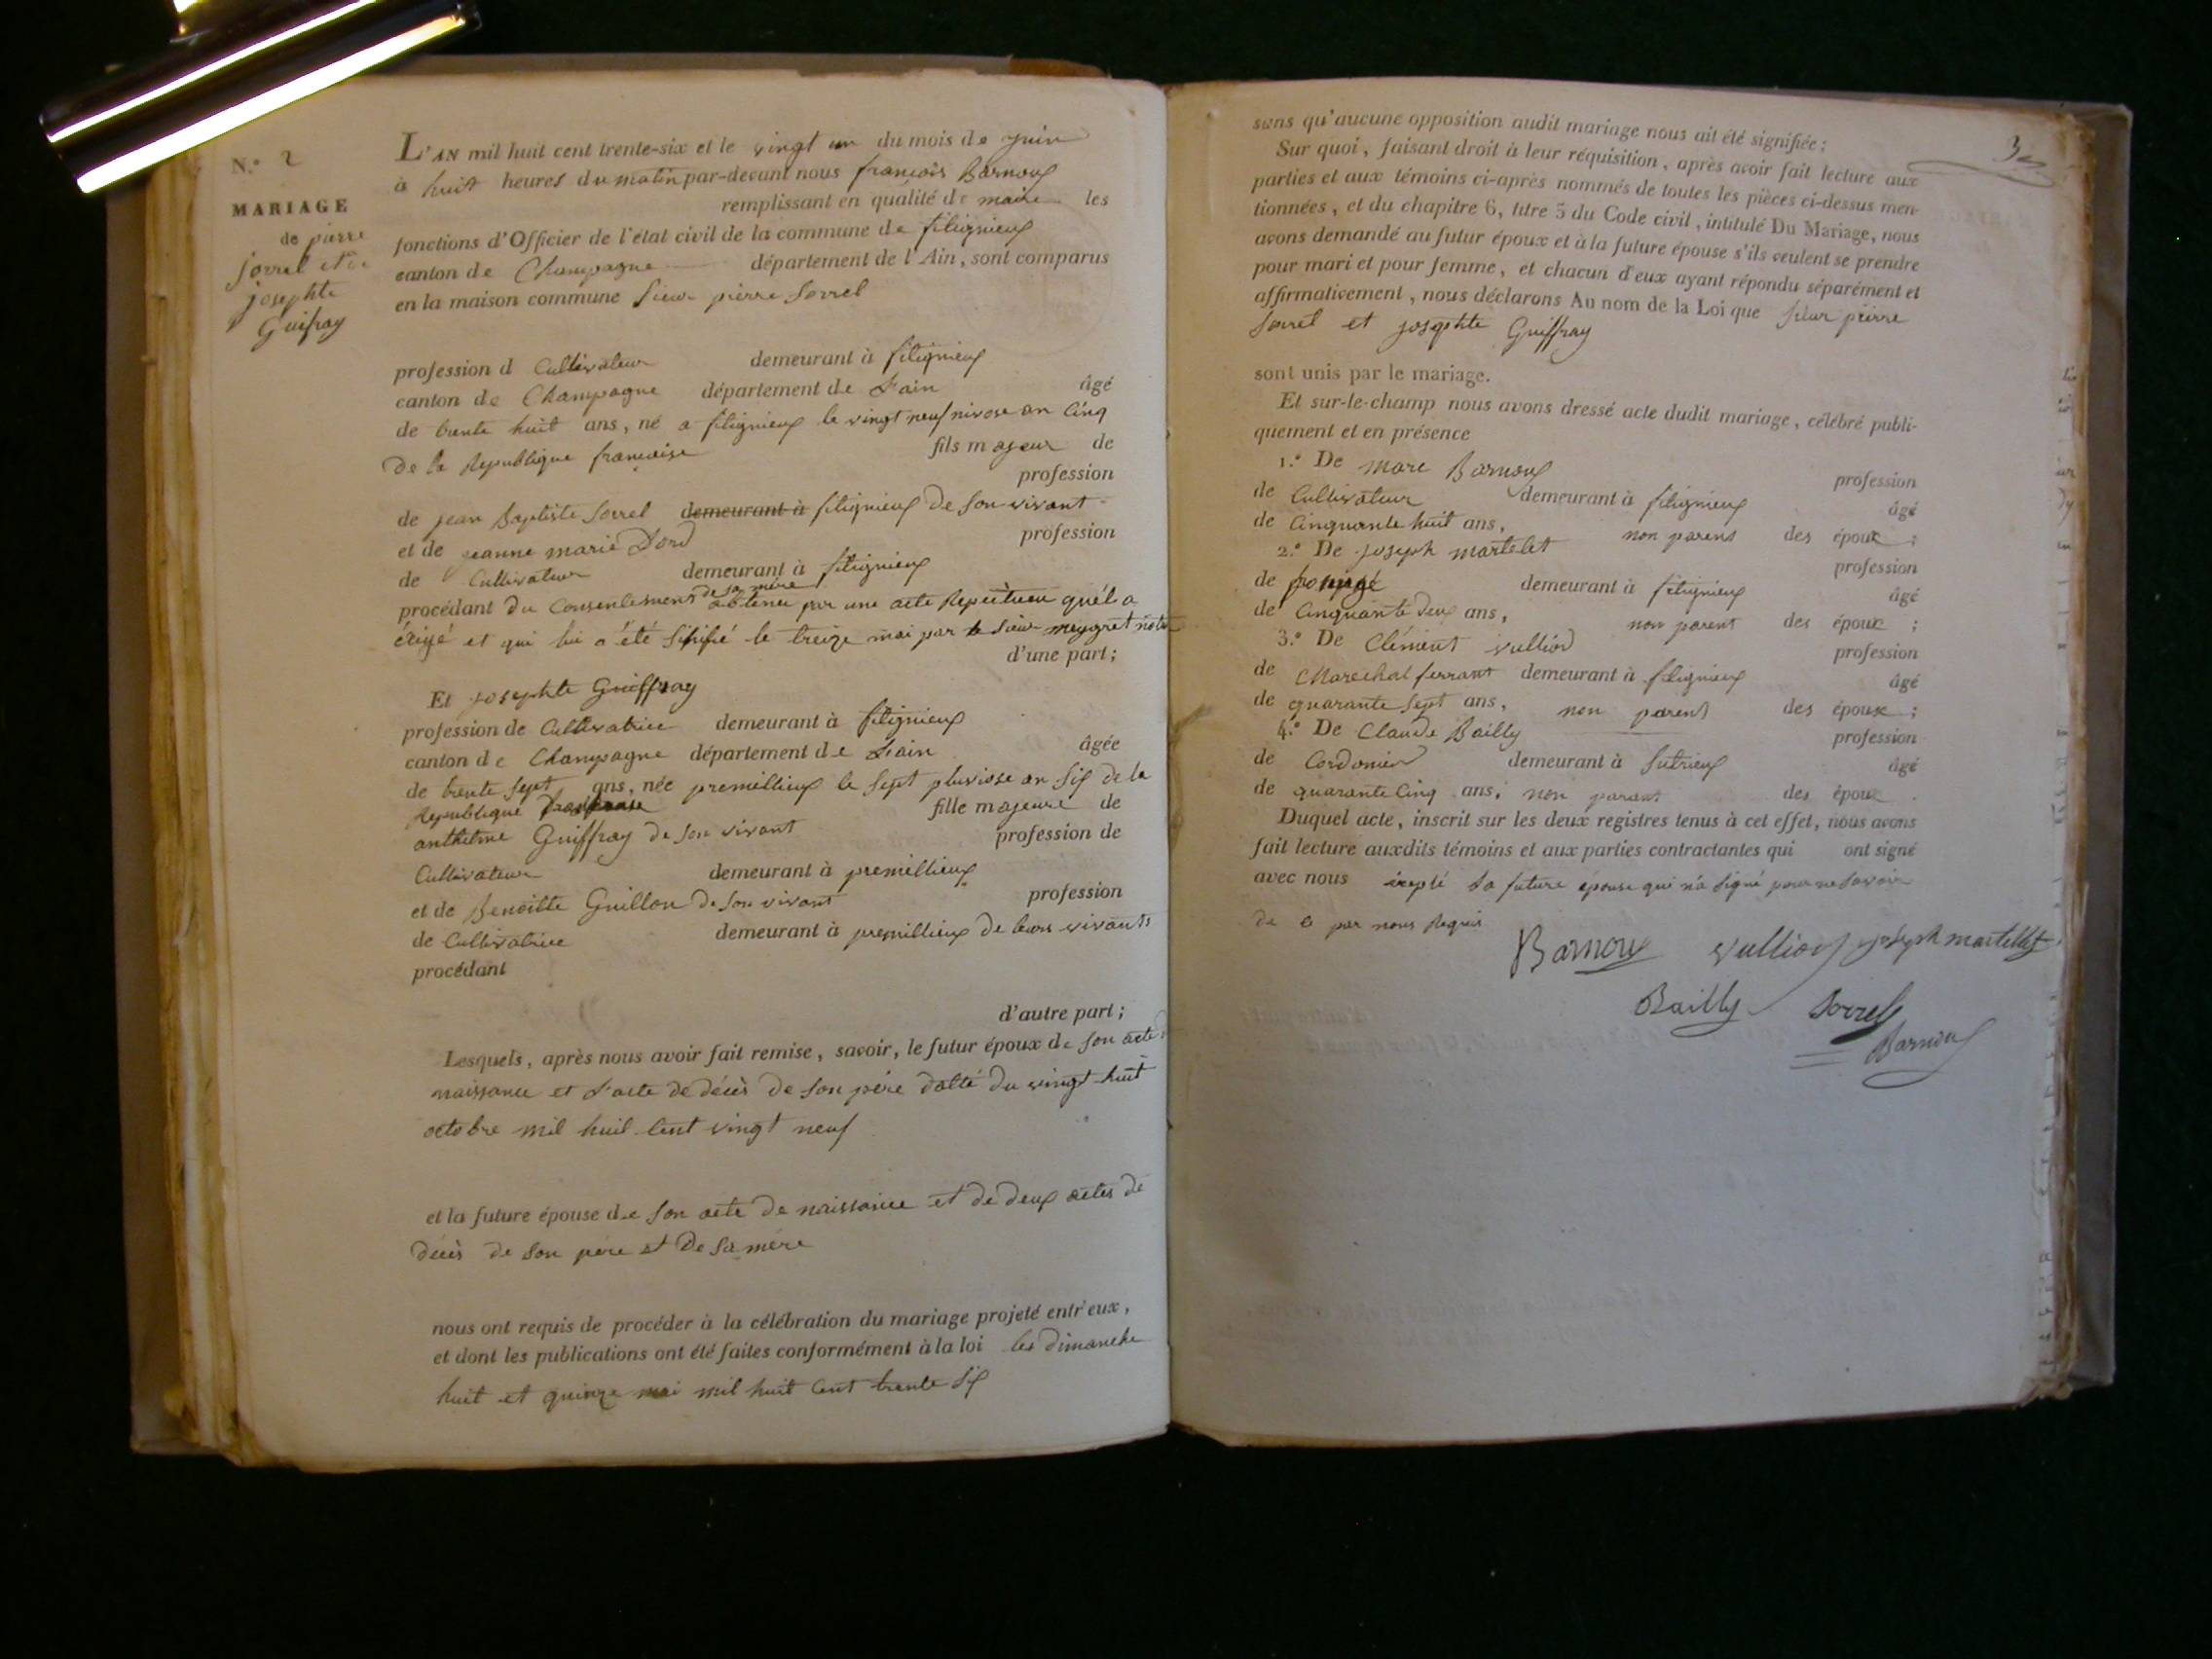 N.° 2
MARIAGE
de pierre
Sorrel et de
josephte
Guifray
L'AN mil huit cent trente-six et le vingt un du mois de juin
à huit heures du matin par-devant nous françois Barnoux
remplissant en qualité de maire les
fonctions d'Officier de l'état civil de la commune de fitignieux
canton de Champagne département de l'Ain, sont comparus
en la maison commune Sieur pierre Sorrel
profession d Cultivateur demeurant à fitignieux
canton de Champagne département de L'ain âgé
de trente huit ans, né a fitignieux le vingt neuf nivose an Cinq
de la Republique francaise fils majeur de
profession
de jean Baptiste Sorrel demeurant à fitignieux de son vivant
et de jeanne marie Dord profession
de Cultivateur demeurant à fitignieux
procédant du Consentement de sa mère obtenu par une acte Respectueu quél a
éxigé et qui lui a été le treize mai par le Sieur meygret
d'une part;
Et josephte Guiffray
profession de Cultivatrice demeurant à fitignieux
canton de Champagne département de L'ain âgée
de trente sept ans, née premillieux le sept pluviose an Six de la
Republique fille majeure de
anthelme Guiffray de son vivant profession de
Cultivateur demeurant à premillieux
et de Benoitte Guillon de son vivant profession
de Cultivatrice demeurant à premillieux de leurs vivants
procédant
d'autre part;
Lesquels, après nous avoir fait remise, savoir, le futur époux de son acte
naissance et L'acte de décès de son père datté du vingt huit
octobre mil huit Cent vingt neuf
et la future épouse de son acte de naissance et de deux actes de
décès de son père et De sa mère
nous ont requis de procéder à la célébration du mariage projeté entr'eux,
et dont les publications ont été faites conformément à la loi les dimanche
huit et quinze mai mil huit Cent trente Six
3
sans qu'aucune opposition audit mariage nous ait été signifiée;
Sur quoi, faisant droit à leur réquisition, après avoir fait lecture aux
parties et aux témoins ci-après nommés de toutes les pièces ci-dessus men-
tionnées, et du chapitre 6, titre 5 du Code civil, intitulé Du Mariage, nous
avons demandé au futur époux et à la future épouse s'ils veulent se prendre
pour mari et pour femme, et chacun d'eux ayant répondu séparément et
affirmativement, nous déclarons Au nom de la Loi que Sieur pierre
Sorrel et josephte Guiffray
sont unis par le mariage.
Et sur-le-champ nous avons dressé acte dudit mariage, célébré publi-
quement et en présence
1.° De marc Barnoux profession
de Cultivateur demeurant à fitignieux âgé
de Cinquante huit ans, non parent des époux;
2.° De joseph martelet profession
de demeurant à fitignieux âgé
de Cinquante deux ans, non parent des époux;
3.° De Clément vulliod profession
de Marechal ferrant demeurant à fitignieux âgé
de quarante sept ans, non parent des époux;
4.° De Claude Bailly profession
de Cordonier demeurant à Sutrieux âgé
de quarante Cinq ans, non parent des époux
Duquel acte, inscrit sur les deux registres tenus à cet effet, nous avons
fait lecture auxdits témoins et aux parties contractantes qui ont signé
avec nous exepté la future épouse qui n'a signé pour ne savoir
de ce par nous Requis
Barnoux vulliod joseph martellet
Bailly Sorrel
Barnoux